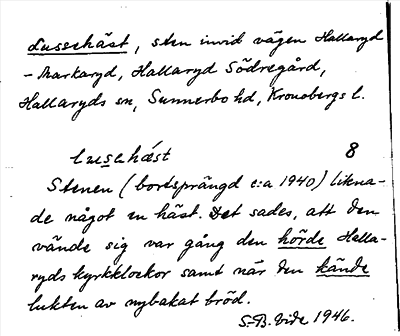 Lussehäst, sten invid vägen Hallaryd
– Markaryd, Hallaryd Södregård,
Hallaryds sn, Sunnerbo hd, Kronobergs l.
lusehǽst 8
Stenen (bortsprängd c:a 1940) likna-
de något en häst. Det sades, att den
vände sig var gång den hörde Halla-
ryds kyrkklockor samt när den kände
lukten av nybakat bröd.
S.-B. Vide 1946.